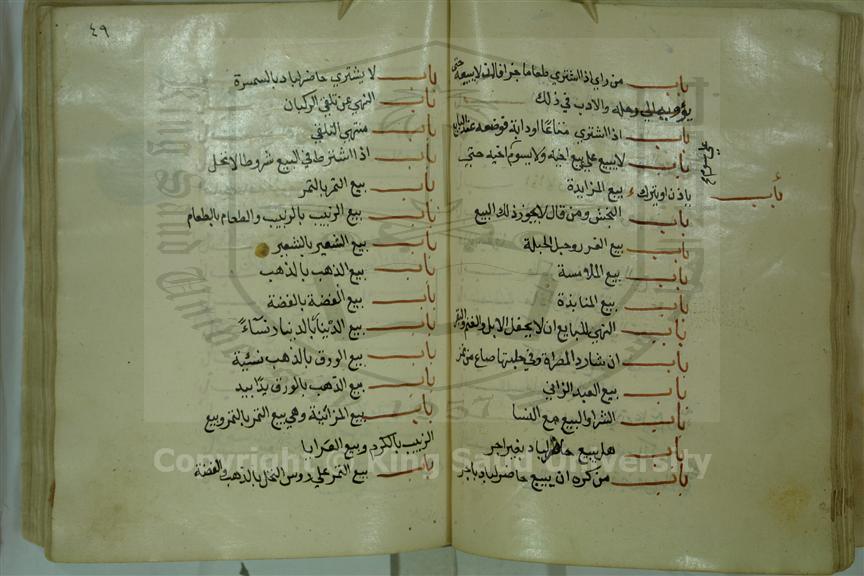 باب من رأى اذا اشترى طعاما جزافا ان لا يبيعه حتى
يؤويه الى رحله والادب في ذلك
باب اذا اشترى متاعا او دابة فوضعه عند البايع
باب لا يبيع على بيع اخيه ولا يسوم على سوم اخيه حتى
ياذن او يترك باب بيع المزايدة
باب النجش ومن قال لا يجوز ذلك البيع
باب بيع الغرر وحبل الحبلة
باب بيع الملامسة
باب بيع المنابذة
باب النهي للبايع ان لا يحفل الابل والغنم والبقر
باب ان شا رد المصراة وفي حلبتها صاع من تمر
باب بيع العبد الزاني
باب الشرا والبيع مع النسا
باب هل يبيع حاضر لباد بغير اجر
باب من كره ان يبيع حاضر لباد باجر
٤٩
باب لا يشتري حاضر لباد بالسمسرة
باب النهي عن تلقي الركبان
باب منتهى التلقي
باب اذا اشترط في البيع شروطا لا تحل
باب بيع التمر بالتمر
باب بيع الزبيب بالزبيب والطعام بالطعام
باب بيع الشعير بالشعير
باب بيع الذهب بالذهب
باب بيع الفضة بالفضة
باب بيع الدينار بالدينار نسآءً
باب بيع الورق بالذهب نسئية
باب بيع الذهب بالورق يدًا بيد
باب بيع المزابنة وهي بيع التمر بالثمر وبيع
الزبيب بالكرم وبيع العرايا
باب بيع الثمر على روس النخل بالذهب والفضة
Copyright © King Saud University
1957